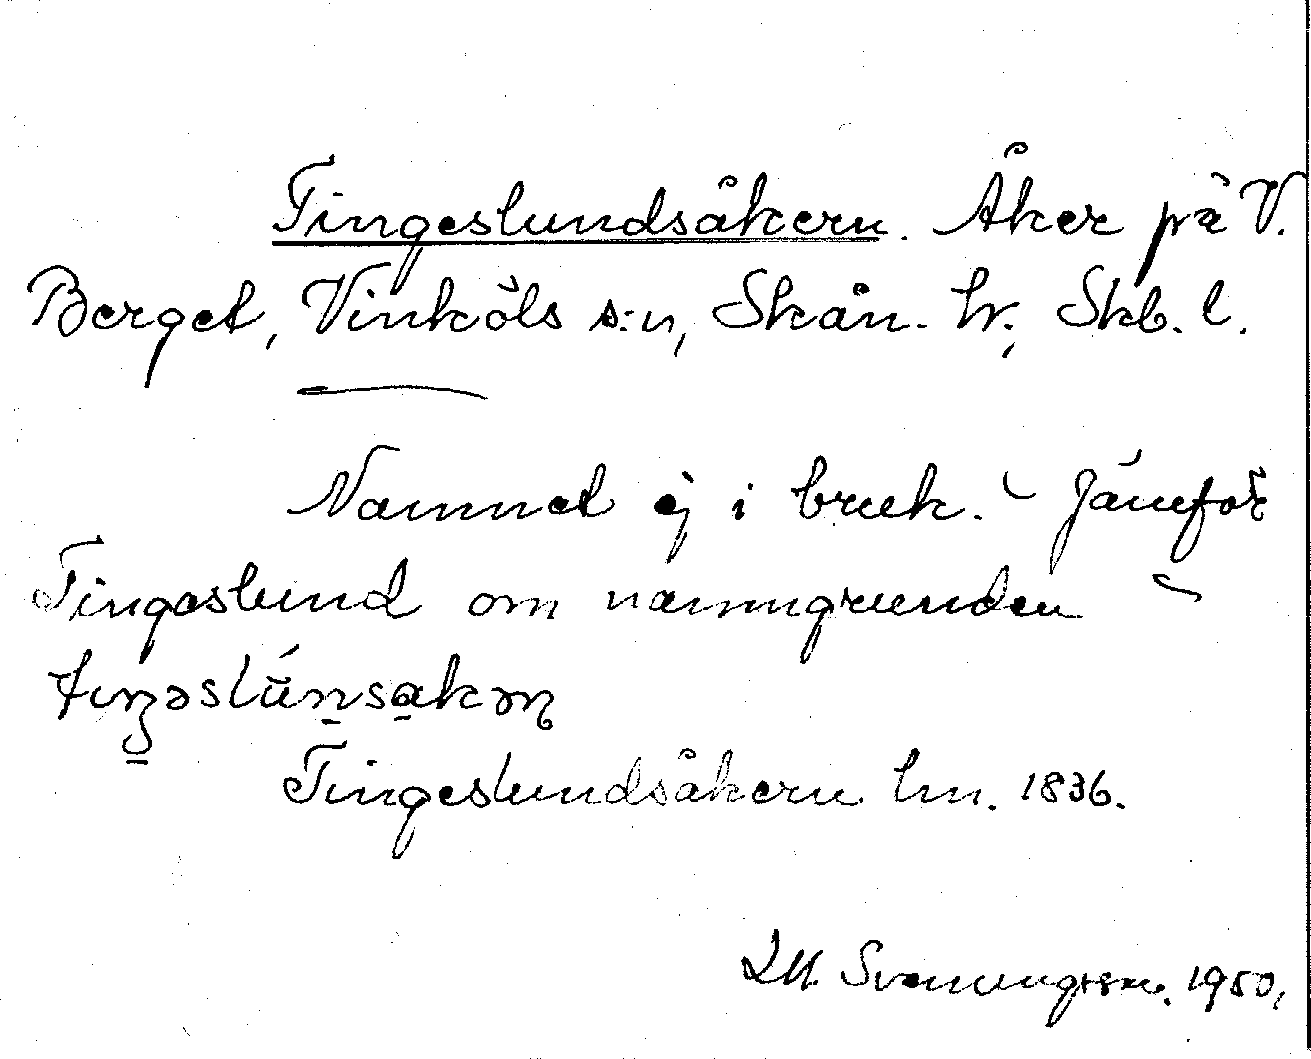 Tingeslundsåkern. Åker på V.
Berget, Vinköls s:n, Skån. hr., Skb. l.
Namnet ej i bruk. – Jämför
Tingeslund om namngrunden –
Tingeslundsåkern lm. 1836.
Svenungsson. 1950.